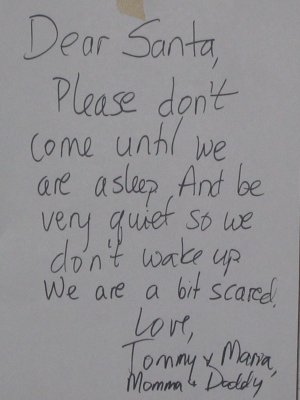 Dear Santa,
Please don't
come until we
are asleep, And be
very quiet so we
don't wake up
We are a bit scared.
Love,
Tommy & Maria,
Momma & Daddy